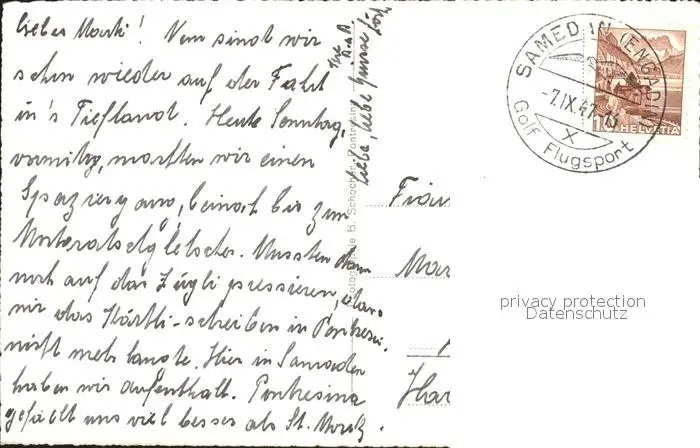 Liebes Marti! Nun sind wir
schon wieder auf der Fahrt
in's Tiefland. Heute Sonntag,
vormittag, machten wir einen
Spaziergang, beinah bis zum
Morteratschgletscher. Mussten dann
noch auf das Zügli pressieren, dass
mir das Kärtli-schreiben in Pontresi.
nicht mehr langte. Hier in Samaden
haben wir Aufenthalt. Pontresina
gefällt uns viel besser als St. Moritz.
Liebe, liebe Grüsse
Photographie B. Schocher, Pontresina
SAMEDIN (ENGADIN)
-7.IX.47.-13
X
Golf Flugsport
10 HELVETIA
Fräu
Mar
Har
privacy protection
Datenschutz